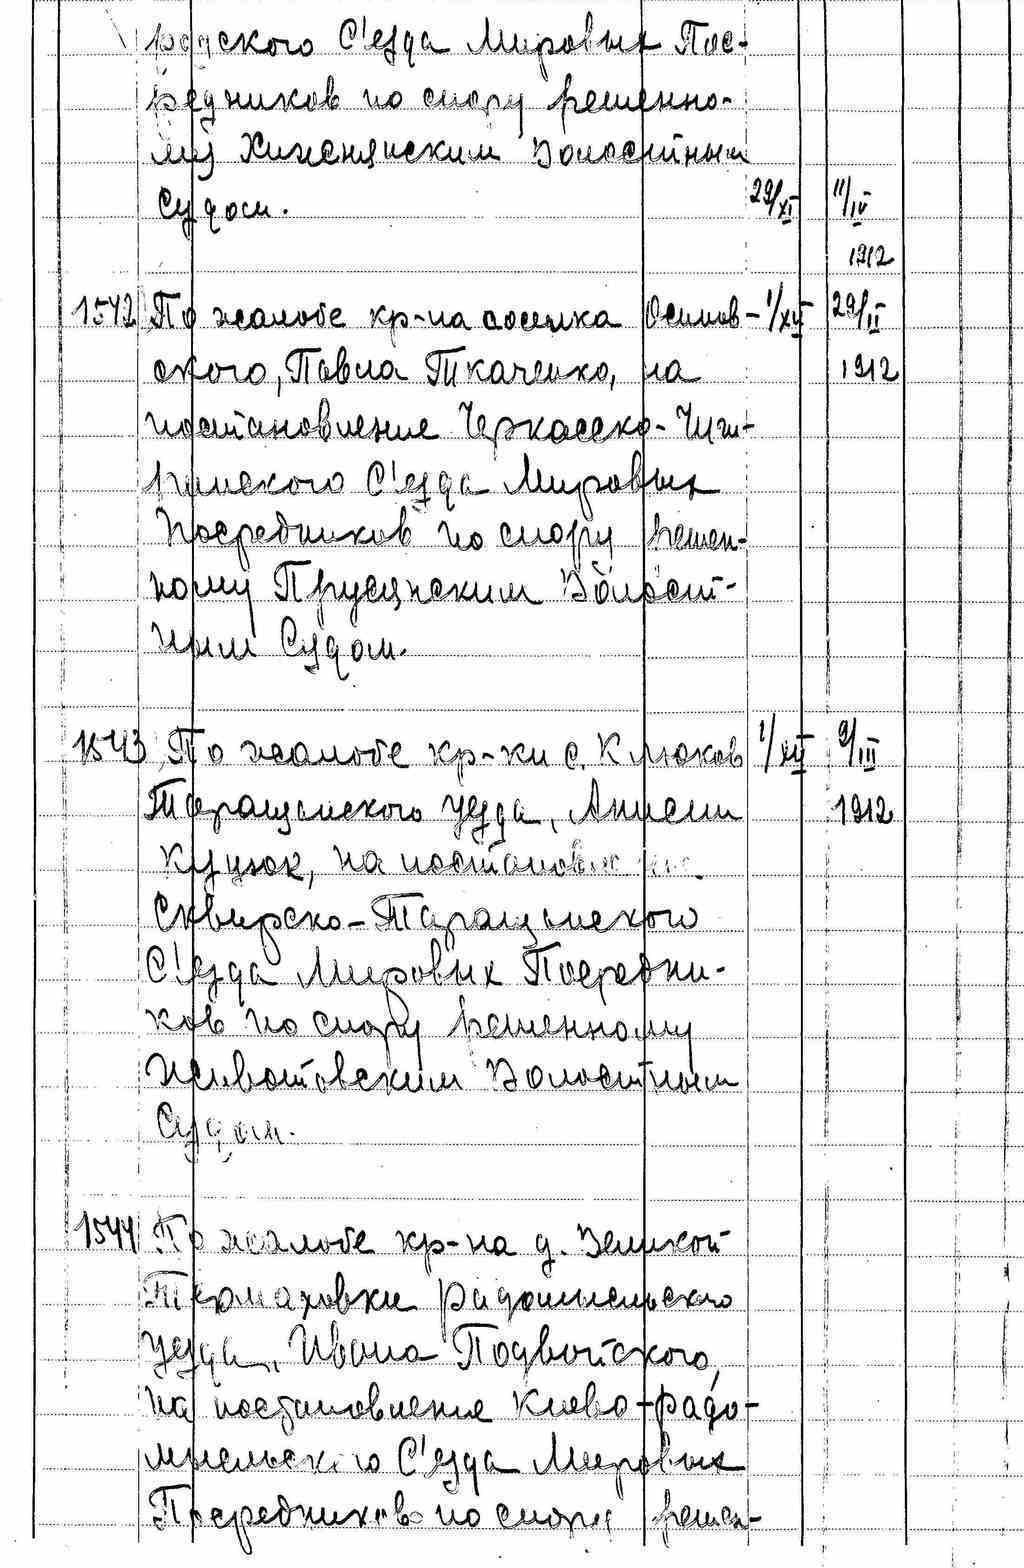 родского С'езда Мировых Пос-
редников по спору решенно-
му Хижнянским Волостным
Судом. 29/XI 11/IV
1912
1542 По жалобе кр-на поселка Осипов- 1/XII 29/II
ского, Павла Ткаченко, на 1912
постановление Черкасско-Чиги-
ринского С'езда Мировых
Посредников по спору решен-
ному Прусянским Волост-
ным Судом.
1543 По жалобе кр-ки с. Клюков 1/XII 9/III
Таращанского уезда, Анисии 1912
Куцюк, на постановление
Сквирско-Таращанского
С'езда Мировых Посредни-
ков по спору решенному
Животовским Волостным
Судом.
1544 По жалобе кр-на д. Великой
Термаховки Радомысльского
уезда, Ивана Подвойского,
на постановление Киево-Радо-
мысльского С'езда Мировых
Посредников по спору решен-